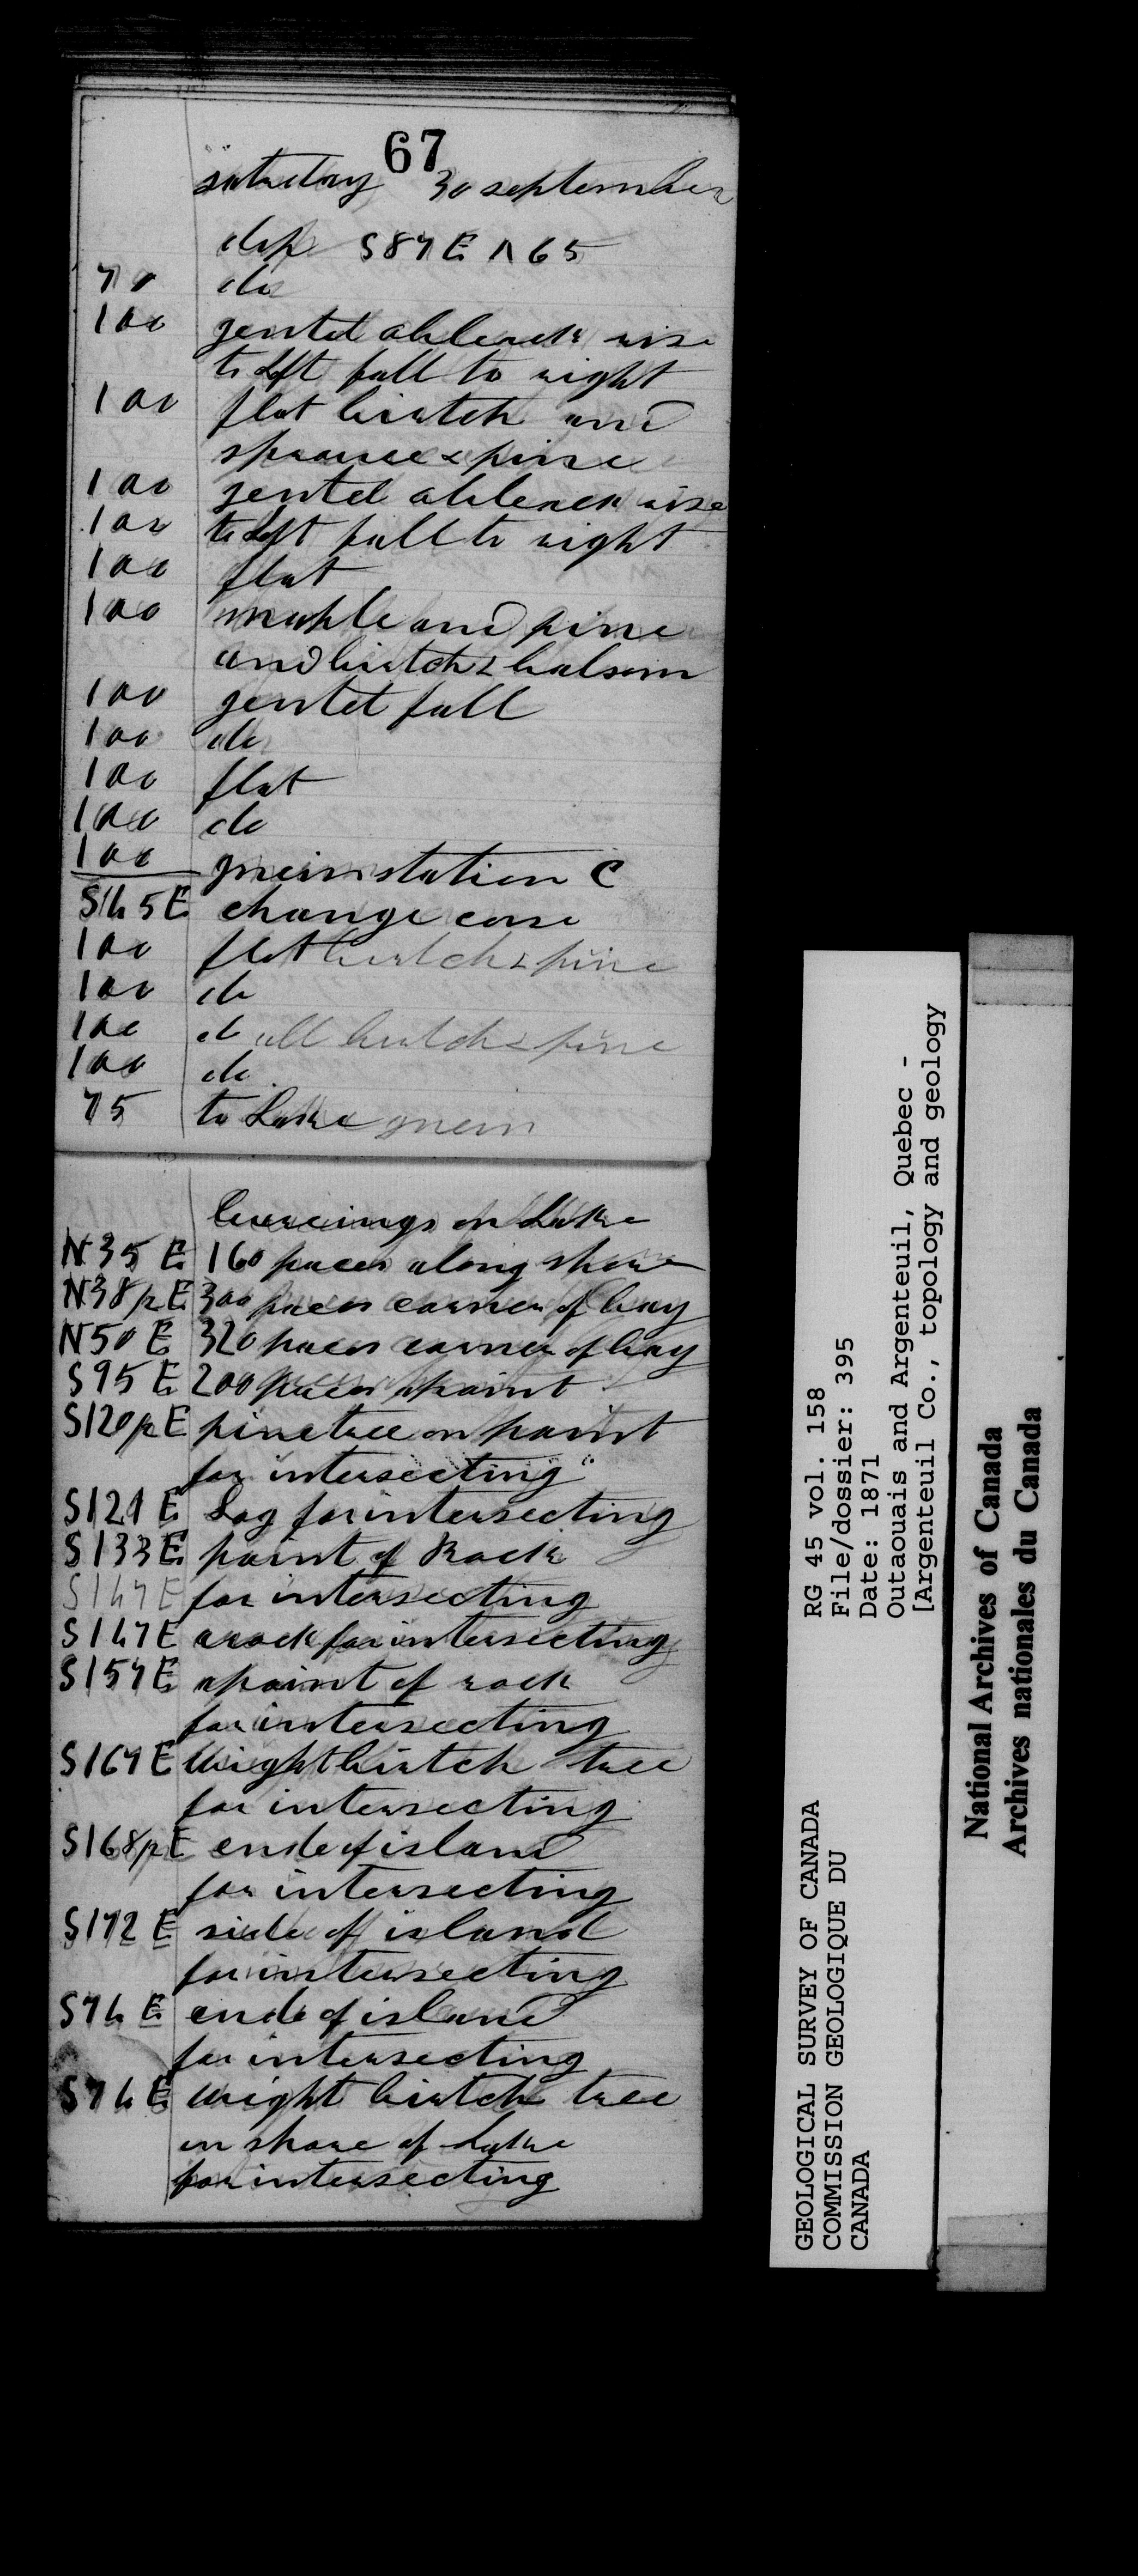 67
saturday 30 september
dip S87E Λ 65
70 do
100 gentel ableack rise
to Left fall to right
100 flat birtch and
spruce & pine
100 gentel ableack rise
100 to Left fall to right
100 flat
100 maple and pine
and birtch & balsom
100 gentel fall
100 do
100 flat
100 do
100 gneiss station C
S45E change corse
100 flat birtch & pine
100 do
100 do all birtch & pine
100 do
75 to Lake gneiss
bearcings on Lake
N35 E 160 paces along shore
N38½E 300 paces corner of bay
N50 E 320 paces corner of bay
S95 E 200 paces apoint
S120½E pine tree on point
for intersecting
S121 E Log for intersecting
S133E point of Rock
S147E for intersecting
S147E arock for intersecting
S157E apoint of rock
for intersecting
S167E wright birtch tree
for intersecting
S168½E ende of island
for intersecting
S172 E side of island
for intersecting
S74 E ende of island
for intersecting
S74E wright birtch tree
on shore of Lake
for intersecting
GEOLOGICAL SURVEY OF CANADA
COMMISSION GEOLOGIQUE DU
CANADA
RG 45 vol. 158
File/dossier: 395
Date: 1871
Outaouais and Argenteuil, Quebec -
[Argenteuil Co., topology and geology
National Archives of Canada
Archives nationales du Canada